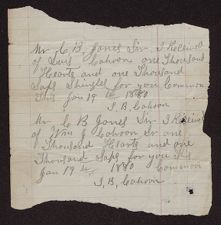 Mr C. B. Jones Sir I Received
of Levi Cahoon one Thousand
Hearts and one Thousand
Saps Shingles for you Common
This Jan 19th 1880
S. B. Cahoon
Mr C B Jones Sir I Received
of Wm J Cahoon Sr one
Thousand Hearts and one
Thousand Saps for you this
Jan 19th 1880 Common
S. B. Cahoon